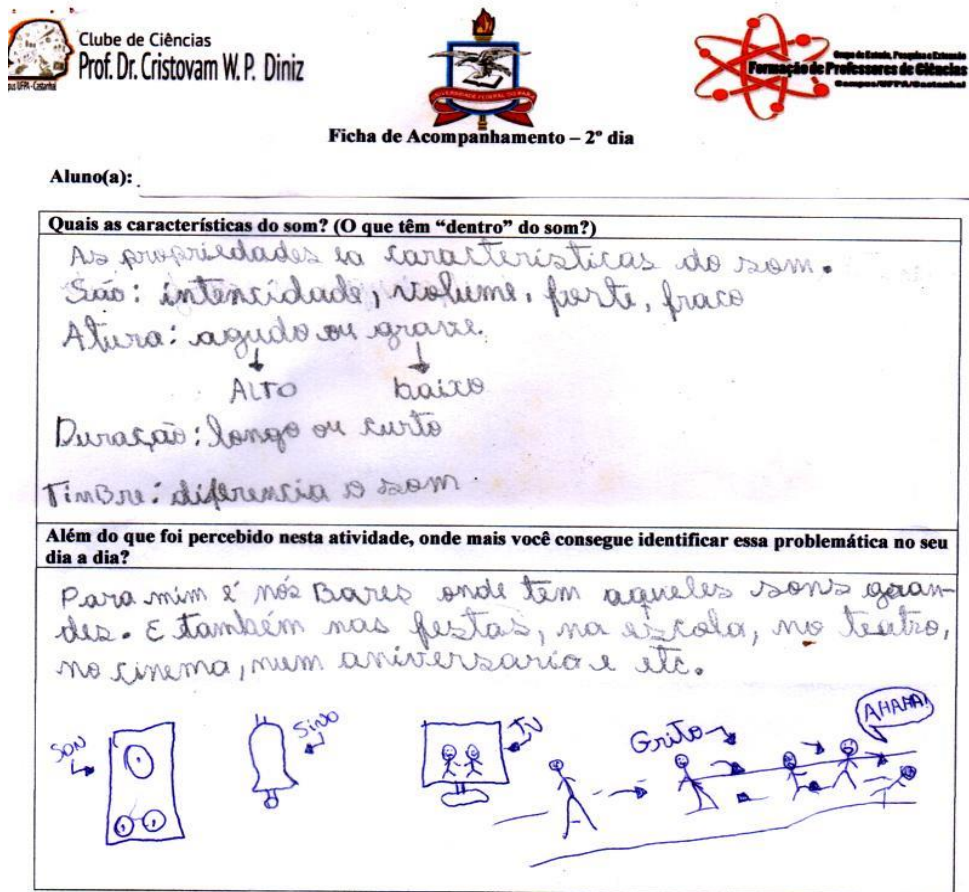 Clube de Ciências
Prof. Dr. Cristovam W. P. Diniz
UNIVERSIDADE FEDERAL DO PARÁ
Grupo de Estudo, Pesquisa e Extensão
Formação de Professores de Ciências
Campus/UFPA/Castanhal
Ficha de Acompanhamento – 2º dia
Aluno(a):
Quais as características do som? (O que têm “dentro” do som?)
As propriedades ea características do som.
São: intencidade, volume, forte, fraco
Altura: agudo ou grave.
ALTO baixo
Duração: longo ou curto
TimBre: diferencia o som.
Além do que foi percebido nesta atividade, onde mais você consegue identificar essa problemática no seu
dia a dia?
Para mim é nós Bares onde tem aqueles sons gran-
des. E também nas festas, na escola, no teatro,
no cinema, num aniversario e etc.
SON
SiNO
TV
Grito
AHAHA!